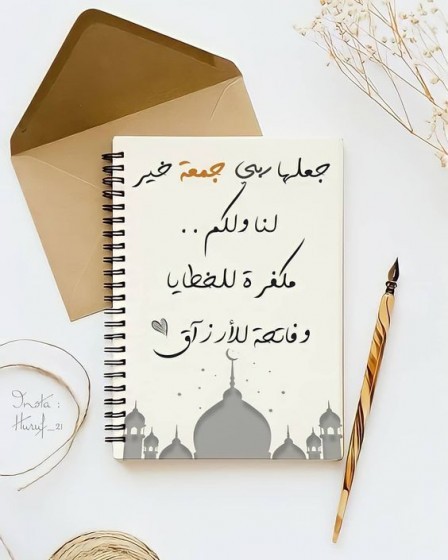 جعلها ربي جمعة خير
لنا ولكم ..
مكفرة للخطايا
وفاتحة للأرزآق
Insta :
Huruf_21